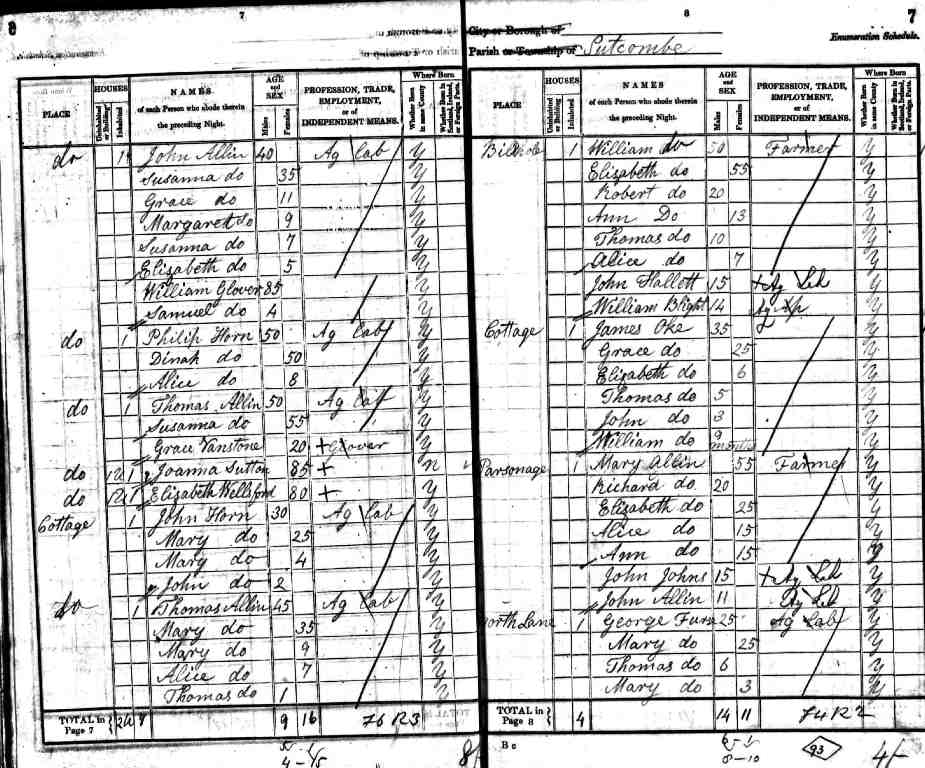 6
7
PLACE
HOUSES
Uninhabited or Building
Inhabited
NAMES
of each Person who abode therein
the preceding Night.
AGE and SEX
Males
Females
PROFESSION, TRADE,
EMPLOYMENT,
or of
INDEPENDENT MEANS.
Where Born
Whether Born in same County
Whether Born in Scotland, Ireland, or Foreign Parts.
do 1 John Allin 40 Ag Lab Y
Susanna do 35 Y
Grace do 11 Y
Margarett do 9 Y
Susanna do 7 Y
Elisabeth do 5 Y
William Glover 85 Y
Samuel do 4 Y
do 1 Philip Horn 50 Ag Lab Y
Dinah do 50 Y
Alice do 8 Y
do 1 Thomas Allin 50 Ag Lab Y
Susanna do 55 Y
Grace Vanstone 20 + Glover Y
do 1 Joanna Sutton 85 + n
do 1 Elisabeth Wellsford 80 + Y
Cottage 1 John Horn 30 Ag Lab Y
Mary do 25 Y
Mary do 4 Y
John do 2 Y
do 1 Thomas Allin 45 Ag Lab Y
Mary do 35 Y
Mary do 9 Y
Alice do 7 Y
Thomas do 1 Y
TOTAL in Page 7 9 16 76 R3
8
7
City or Borough of
Parish or Township of Sutcombe
Enumeration Schedule.
PLACE
HOUSES
Uninhabited or Building
Inhabited
NAMES
of each Person who abode therein
the preceding Night.
AGE and SEX
Males
Females
PROFESSION, TRADE,
EMPLOYMENT,
or of
INDEPENDENT MEANS.
Where Born
Whether Born in same County
Whether Born in Scotland, Ireland, or Foreign Parts.
1 William do 50 Farmer Y
Elisabeth do 55 Y
Robert do 20 Y
Ann Do 13 Y
Thomas do 10 Y
Alice do 7 Y
John Hallett 15 + Ag Lab Y
William Blight 14 Ag Ap Y
Cottage 1 James Oke 35 Y
Grace do 25 Y
Elisabeth do 6 Y
Thomas do 5 Y
John do 3 Y
William do 9 months Y
Parsonage 1 Mary Allin 55 Farmer Y
Richard do 20 Y
Elisabeth do 25 Y
Alice do 15 Y
Ann do 15 Y
John Johns 15 + Ag Lab Y
John Allin 11 Ag Lab Y
North Lane 1 George Furse 25 Ag Lab Y
Mary do 25 Y
Thomas do 6 Y
Mary do 3 Y
TOTAL in Page 8 4 14 11 74 R2
B c
93
4/-